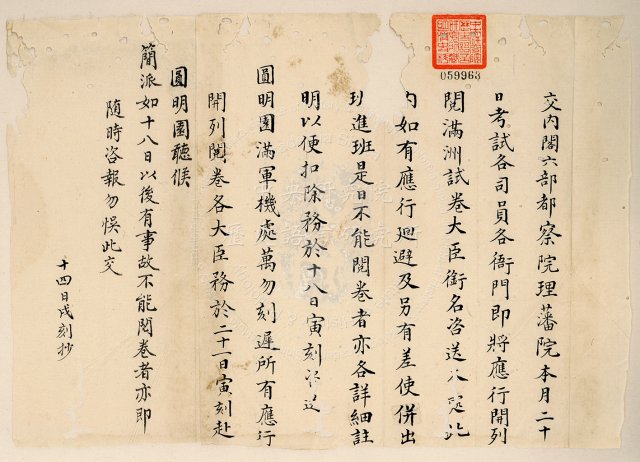 交內閣六部都察院理藩院本月二十
日考試各司員各衙門即將應行開列
閱滿洲試卷大臣銜名咨送
內如有應行迴避及另有差使併出
班進班是日不能閱卷者亦各詳細註
明以便扣除務於十八日寅刻咨送
圓明園滿軍機處萬勿刻遲所有應行
開列閱卷各大臣務於二十一日寅刻赴
圓明園聽候
簡派如十八日以後有事故不能閱卷者亦即
隨時咨報勿悞此交
十四日戌刻抄
059963